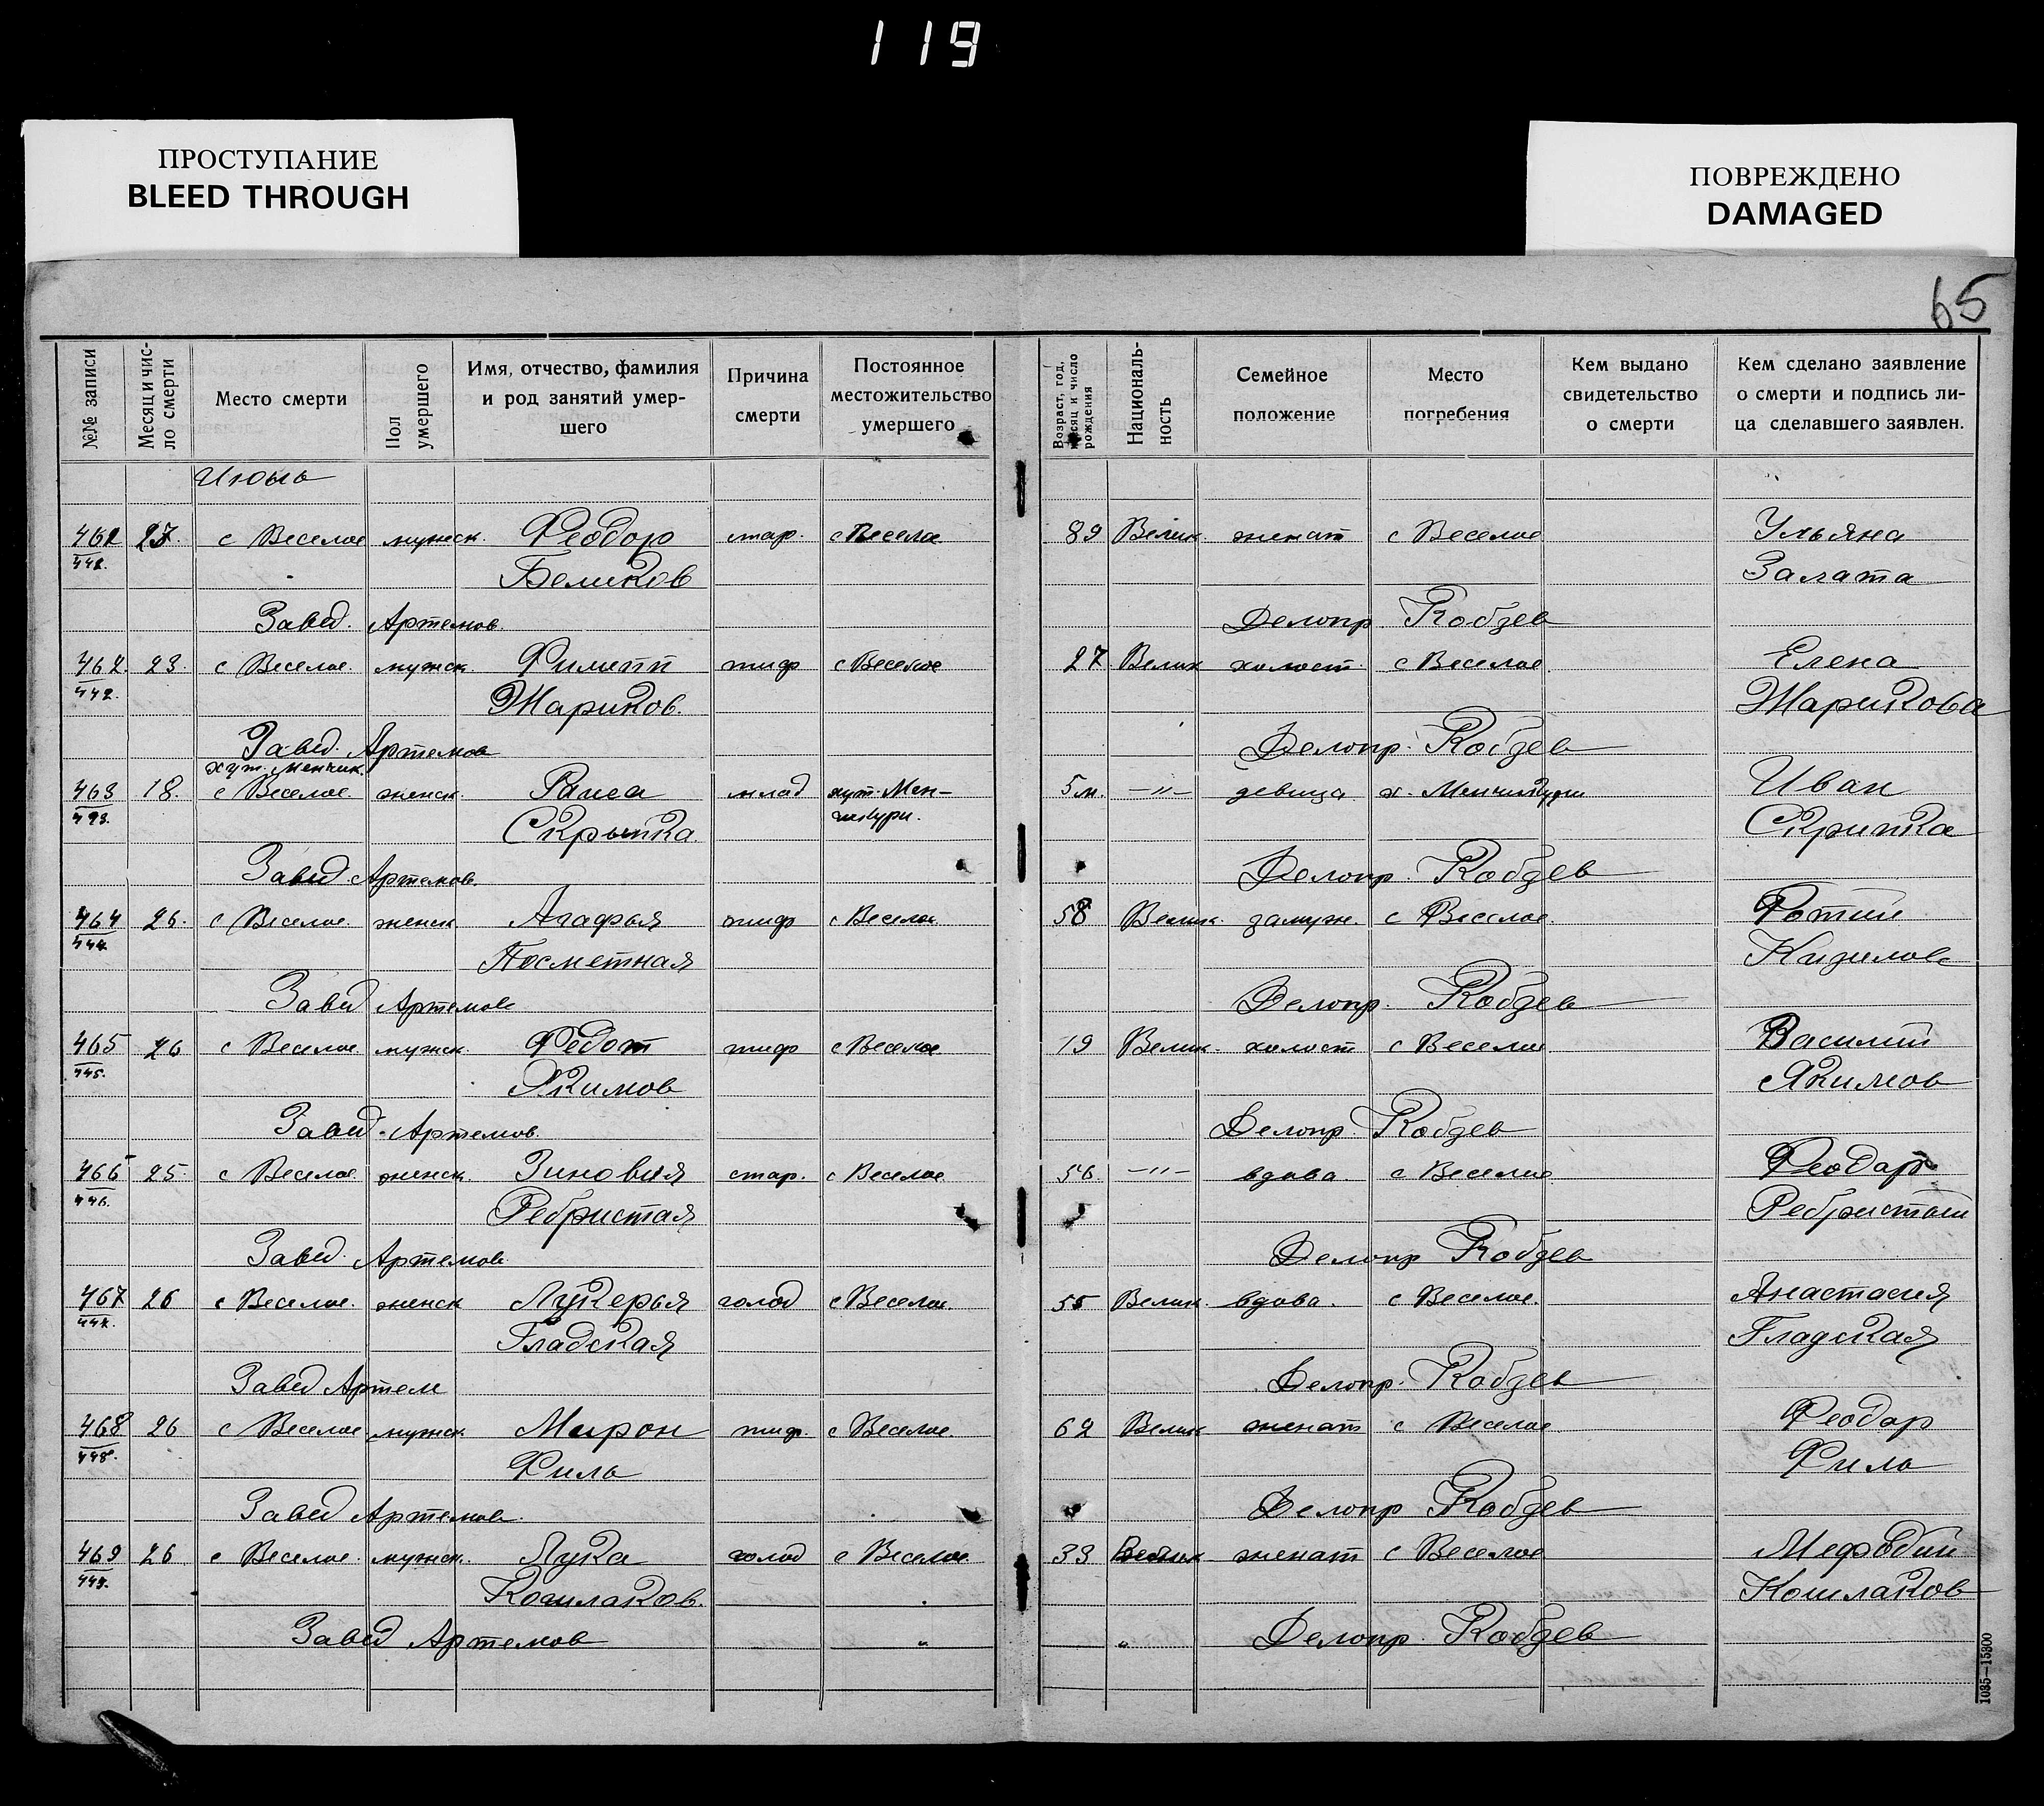 119
ПРОСТУПАНИЕ
BLEED THROUGH
ПОВРЕЖДЕНО
DAMAGED
65
№№ записи | Месяц и чис-ло смерти | Место смерти | Пол умершего | Имя, отчество, фамилия и род занятий умер-шего | Причина смерти | Постоянное местожительство умершего | Возраст, год, месяц и число рождения | Националь-ность | Семейное положение | Место погребения | Кем выдано свидетельство о смерти | Кем сделано заявление о смерти и подпись ли-ца сделавшего заявлен.
461 27. с Веселое мужск. Феодор стар. с Веселое 89 Велик. женат с Веселое Ульяна
Беликов Залата
Завед. Артемов. Делопр Кобзев
462 23. с Веселое. мужск Филипп тиф с Веселое 27 Велик холост с Веселое. Елена
442. Жариков. Жарикова
Завед. Артемов Делопр. Кобзев
хут. Менчик.
463 18. с Веселое. женск. Раиса млад хут. Мен- 5 м. -"- девица х. Иван
Скрыпка. Скрипка
Завед. Артемов. Делопр. Кобзев
464 26. с Веселое. женск Агафья тиф с Веселое 58 Велик. замужн. с Веселое. Фотий
444. Посметная
Завед Артемов Делопр. Кобзев
465 26 с Веселое. мужск. Федот тиф с Веселое 19 Велик. холост с Веселое. Василий
445. Якимов Якимов
Завед. Артемов. Делопр. Кобзев
466 25. с Веселое. женск. Зиновия стар. с Веселое 56. -"- вдова. с Веселое Феодор
446. Ребристая Ребристый
Завед. Артемов. Делопр Кобзев
467 26 с Веселое. женск Лукерья голод с Веселое. 55 Велик. вдова. с Веселое. Анастасия
447. Гладская Гладская
Завед Артем Делопр. Кобзев
468 26 с Веселое мужск Мирон тиф. с Веселое. 62 Велик женат с Веселое. Феодор
448. Филь Филь
Завед Артемов. Делопр Кобзев
469 26 с Веселое. мужск. Лука голод с Веселое 33 Велик женат с Веселое Мефодий
449. Кошлаков. Кошлаков
Завед Артемов " " Делопр. Кобзев
1035—15300